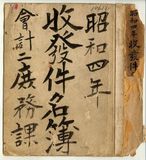 昭和四年
收發件名簿
會計二庶務課
昭和四年收發件